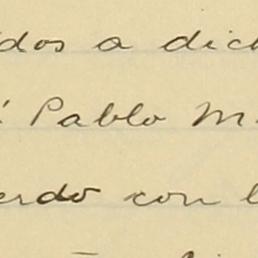 dos a dich
Pablo M
erdo con l